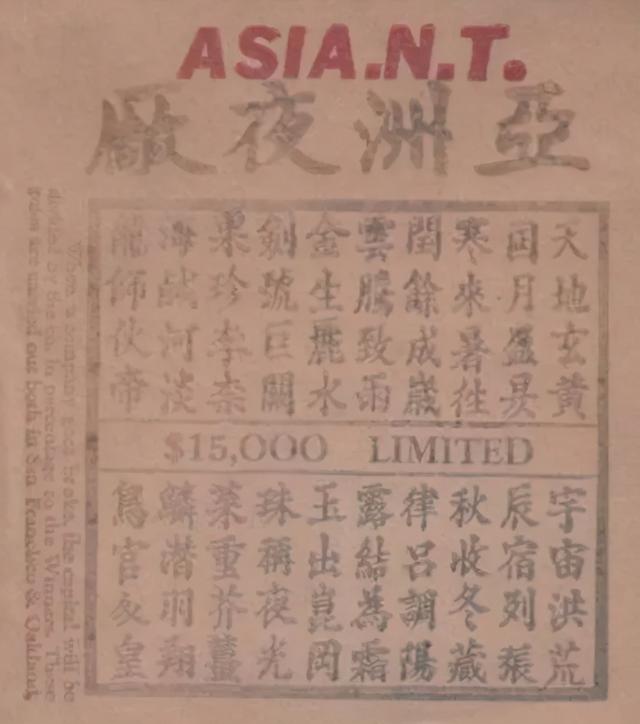 ASIA.N.T.
亞洲夜厰
天地玄黃
月盈昃
寒來暑往
閏餘成歲
雲騰致雨
金生麗水
劍號巨闕
果珍李柰
海鹹河淡
龍師伙帝
$15,000 LIMITED
宇宙洪荒
辰宿列張
秋收冬藏
律呂調陽
露結為霜
玉出崑岡
珠稱夜光
菜重芥薑
鱗潛羽翔
鳥官皇
When a company goes broke, the capital will be
divided by the co. in percentage to the Winners. These
are carried out both in San Francisco & Oakland.